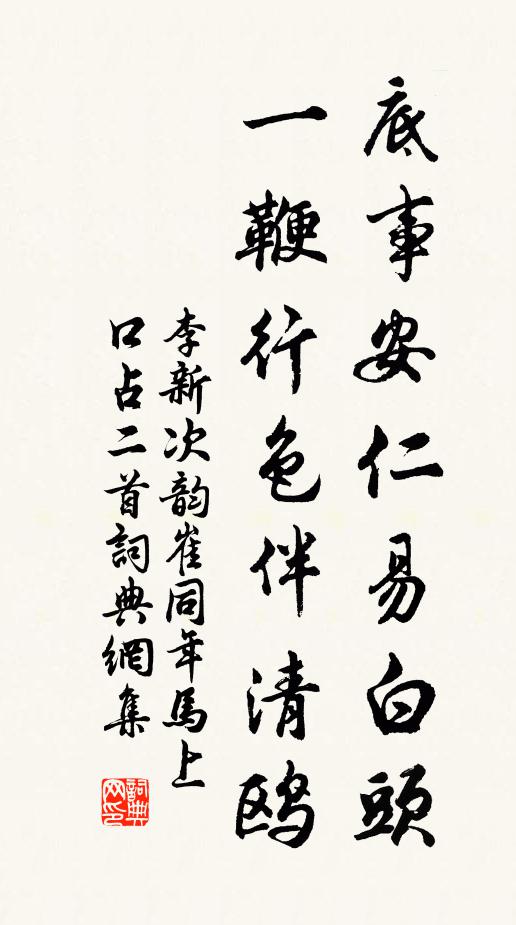 底事安仁易白頭
一鞭行色伴清鷗
李新次韵崔同年馬上
口占二首詞典網集
詞典
网印